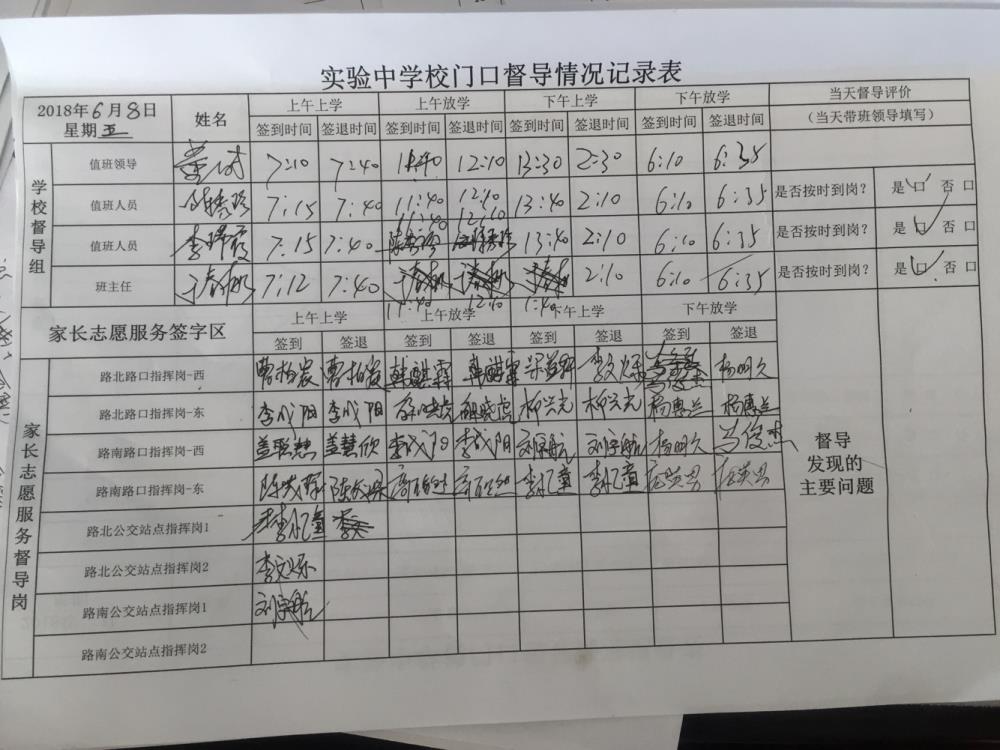 实验中学校门口督导情况记录表
2018年6月8日 星期五 姓名 上午上学 上午放学 下午上学 下午放学 当天督导评价
签到时间 签退时间 签到时间 签退时间 签到时间 签退时间 签到时间 签退时间 (当天带班领导填写)
学校督导组
值班领导 7:10 7:40 11:40 12:10 13:30 2:30 6:10 6:35
值班人员 7:15 7:40 11:40 12:10 13:40 2:10 6:10 6:35 是否按时到岗? 是口 否口
11:40 12:10
值班人员 李瑞霞 7:15 7:40 13:40 2:10 6:10 6:35 是否按时到岗? 是口 否口
班主任 7:12 7:40 2:10 6:10 6:35 是否按时到岗? 是口 否口
11:40 12:10 1:40
家长志愿服务签字区 上午上学 上午放学 下午上学 下午放学
签到 签退 签到 签退 签到 签退 签到 签退
家长志愿服务督导岗
路北路口指挥岗-西 曹柏岩 曹柏岩 韩麒霖 韩麒霖 杨明久
路北路口指挥岗-东 李成阳 李成阳 柳兴光 柳兴光 杨惠兰 杨惠兰
路南路口指挥岗-西 盖慧欣 李成阳 李成阳 刘宇航 刘宇航 杨明久 马俊杰
路南路口指挥岗-东 李忆童 李忆童
路北公交站点指挥岗1 李忆童
路北公交站点指挥岗2
路南公交站点指挥岗1 刘宇航
路南公交站点指挥岗2
督导
发现的
主要问题